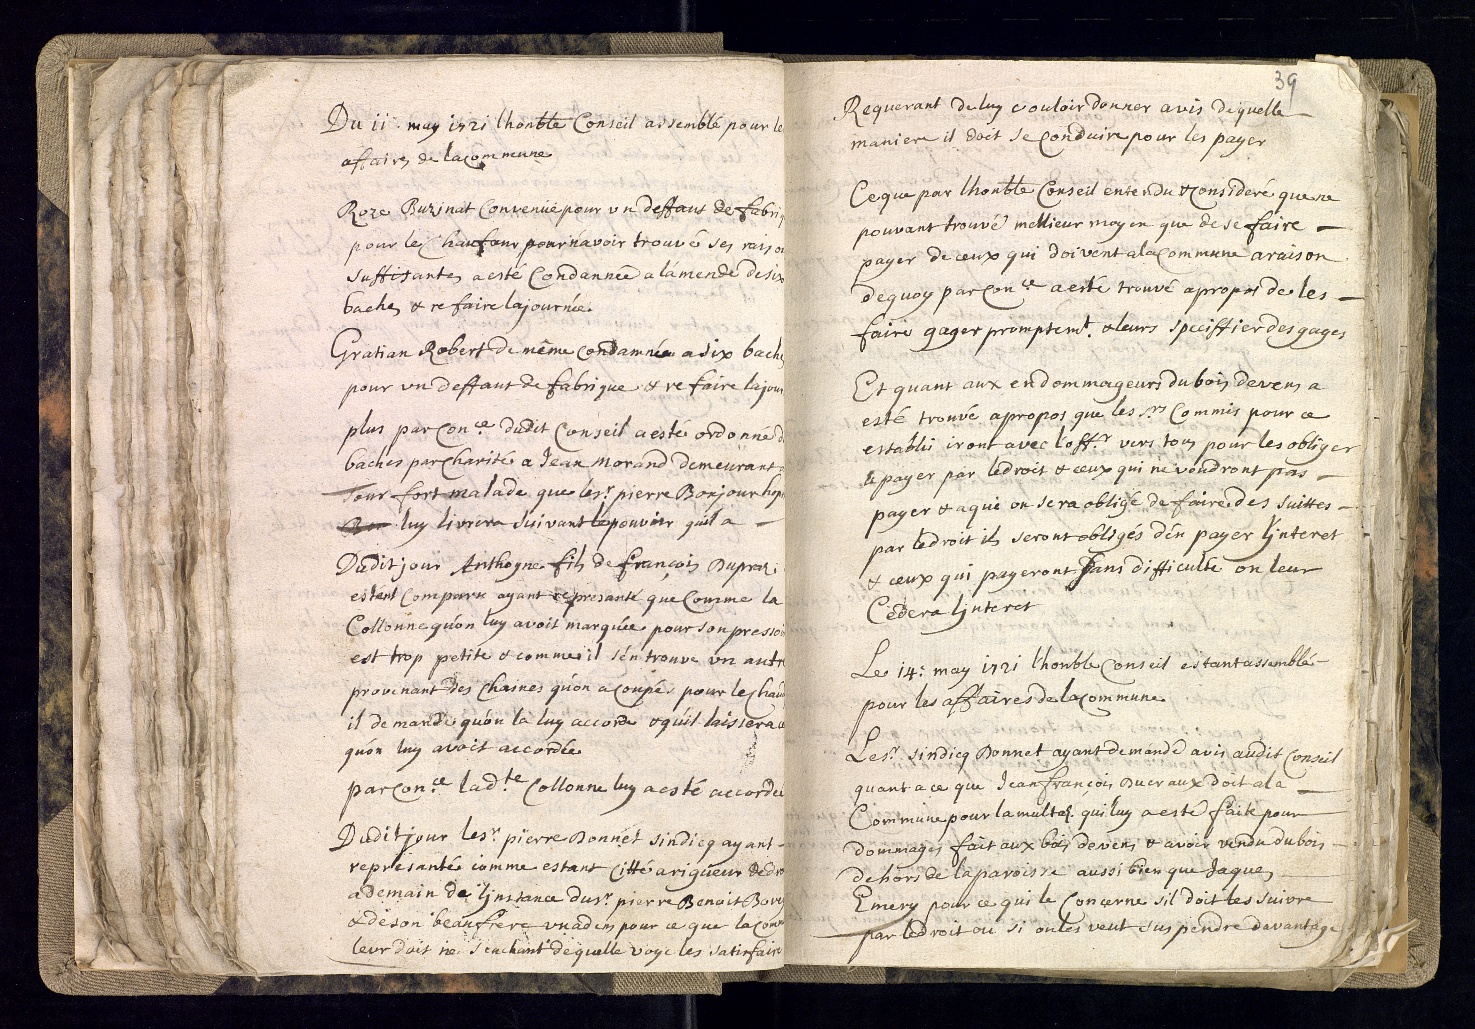 Du ii. may 1721 lhonble Conseil assemblé pour le
affaires de la Commune
Roze Buzinat Convenüe pour un deffaut de fabriq
pour le Chaufour pour navoir trouvé ses raison
suffisantes a esté Condannée a lámende de six
baches & refaire la journée.
Gratian Robert de même condamnée a dix bache
pour un deffaut de fabrique & re faire la jour
plus par Con.ce dudit Conseil a esté ordonné d
baches par Charité a Jean Morand demeurant
Tour fort malade que le sr. pierre Bonjour hop
luy livrera suivant le pouvoir quil a
Dudit jour Anthoyne fils de françois Dupraz
estant Comparu ayant represanté que Comme la
Collonne quón luy avoit marquée pour son pressoi
est trop petite & comme il sén trouve un autr
provenant des Chaines quón a coupé pour le Chau
il demande quón la luy accorde & quil laissera
quón luy avoit accordée
par con.ce lad.te Collonne luy a esté accordée
Dudit jour le sr. pierre Bonnet sindicq ayant
represanté comme estant Citté a rigueur de dro
a demain de línstance du sr. pierre Benoit
& de son beaufrere pour ce que la Com
leur doit ne sachant de quelle voye les satisfaire
39
Requerant de luy vouloir donner avis de quelle
maniere il doit se Conduire pour les payer
Ce que par lhonble Conseil entendu & Consideré que ne
pouvant trouvé mellieur moyen que de se faire
payer de ceux qui doivent a la Commune a raison
de quoy par Con.ce a esté trouvé a propos de les
faire gager promptemt. & leurs speciffier des gages
Et quant aux endommageurs du bois devens a
esté trouvé a propos que les Srs Commis pour ce
establi iront avec loffr vers tous pour les obliger
a payer par le droit & ceux qui ne voudront pas
payer & a qui on sera obligé de faire des suittes
par le droit ils seront obligés dén payer línteret
& ceux qui payeront sans difficulté on leur
Cédera línteret
Le 14: may 1721 lhonble Conseil estant assemblé
pour les affaires de la Commune
Le sr. sindicq Bonnet ayant demandé avis audit Conseil
quant a ce que Jean françois doit a la
Commune pour la qui luy a esté faite pour
dommages fait aux bois devens & avoir vendu du bois
dehors de la paroisse aussi bien que Jaques
Emery pour ce qui le Concerne sil doit les suivre
par le droit ou si on les veut suspendre davantage